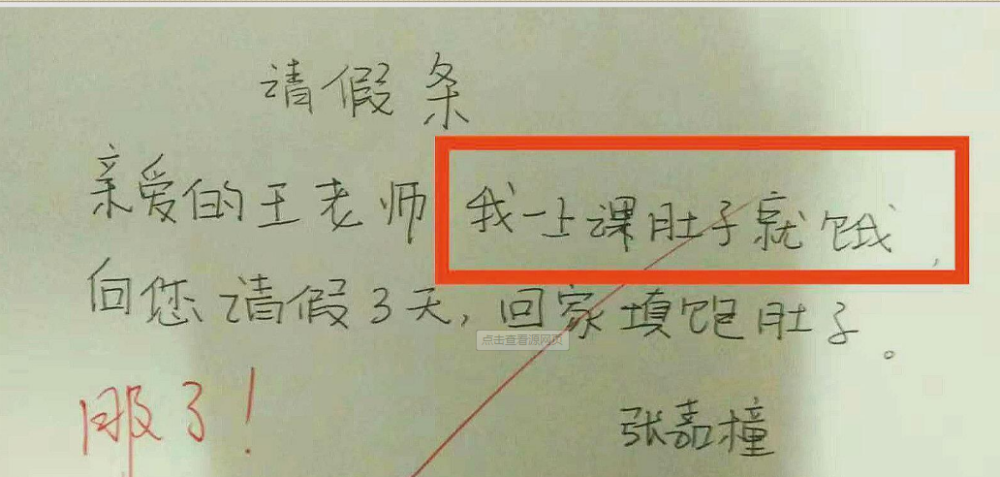 请假条
亲爱的王老师 我一上课肚子就饿,
向您请假3天,回家填饱肚子。
点击查看源网页
服了!
张嘉橦